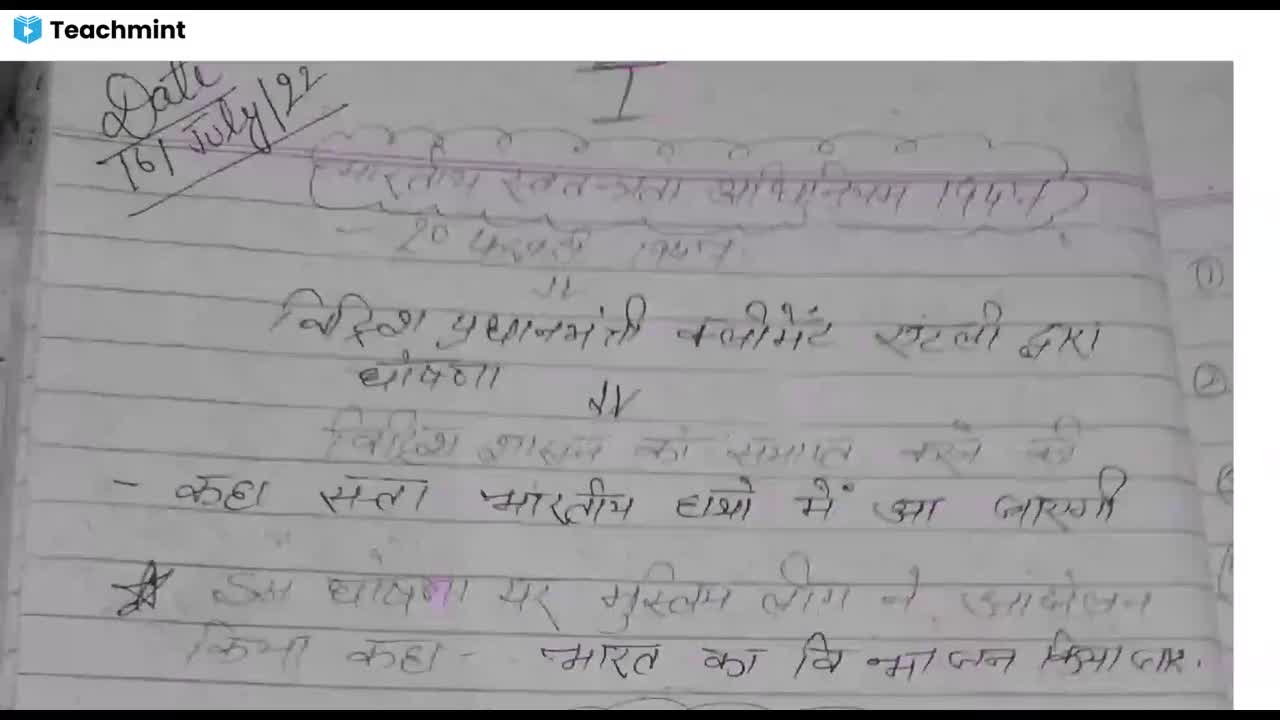 Teachmint
I
Date
16/July/22
भारतीय स्वतन्त्रता अधिनियम 1947
- 20 फरवरी 1947
ब्रिटिश प्रधानमंत्री क्लीमेंट एटली द्वारा
घोषणा
ब्रिटिश शासन को समाप्त करने की
- कहा सत्ता भारतीय हाथो में आ जाएगी
इस घोषणा पर मुस्लिम लीग ने आंदोलन
किया कहा - भारत का विभाजन किया जाए.
①
②